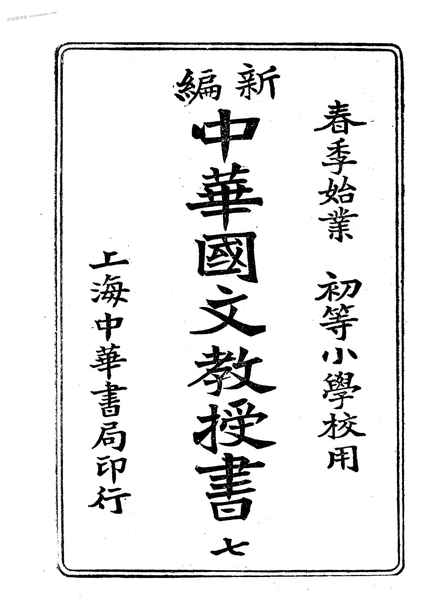 春季始業 初等小學校用
新編
中華國文教授書 七
上海中華書局印行